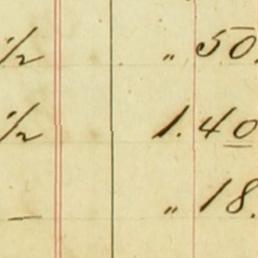 1/2 " 50.
1/2 1.40
— " 18.